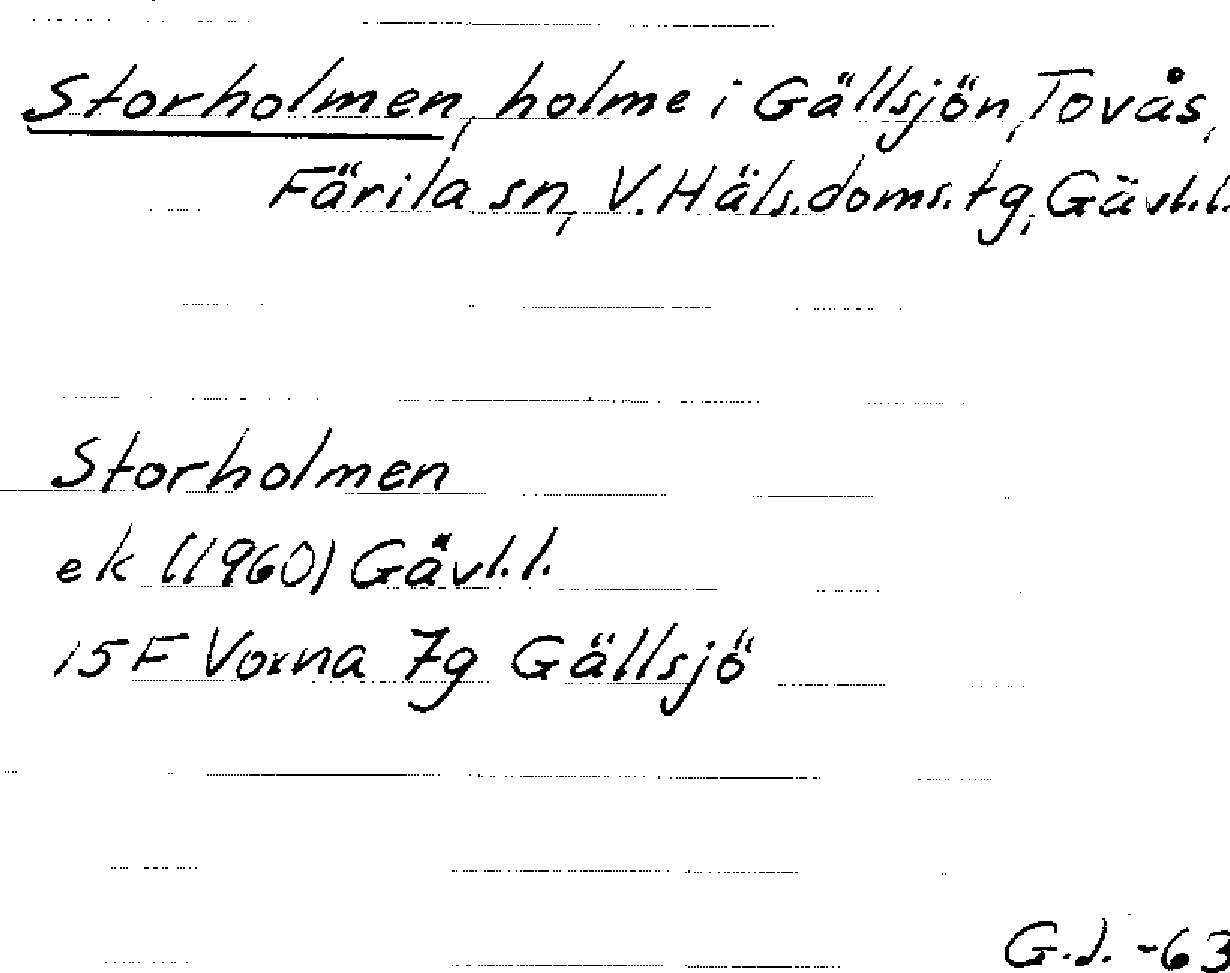 Storholmen, holme i Gällsjön, Tovås,
Färila sn, V. Häls. doms. tg, Gävl.l.
Storholmen
ek (1960) Gävl.l.
15 F Voxna 7g Gällsjö
G.J. -63